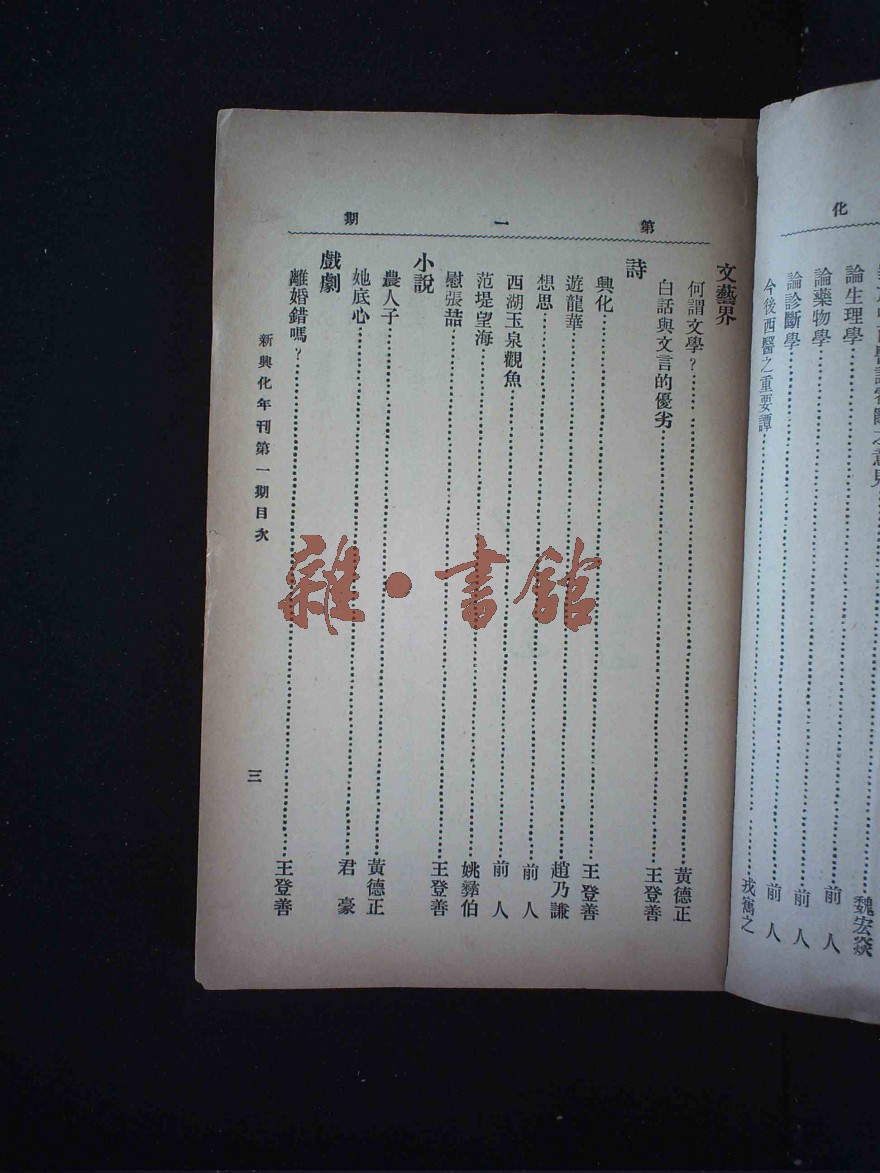 化
論生理學 魏宏焱
論藥物學 前人
論診斷學 前人
今後西醫之重要譚 戎寯之
第一期
文藝界
何謂文學？ 黃德正
白話與文言的優劣 王登善
詩
興化 王登善
遊龍華 趙乃謙
想思 前人
西湖玉泉觀魚 前人
范堤望海 姚彝伯
慰張喆 王登善
小說
農人子 黃德正
她底心 君豪
戲劇
離婚錯嗎？ 王登善
新興化年刊第一期目次
三
雜·書館